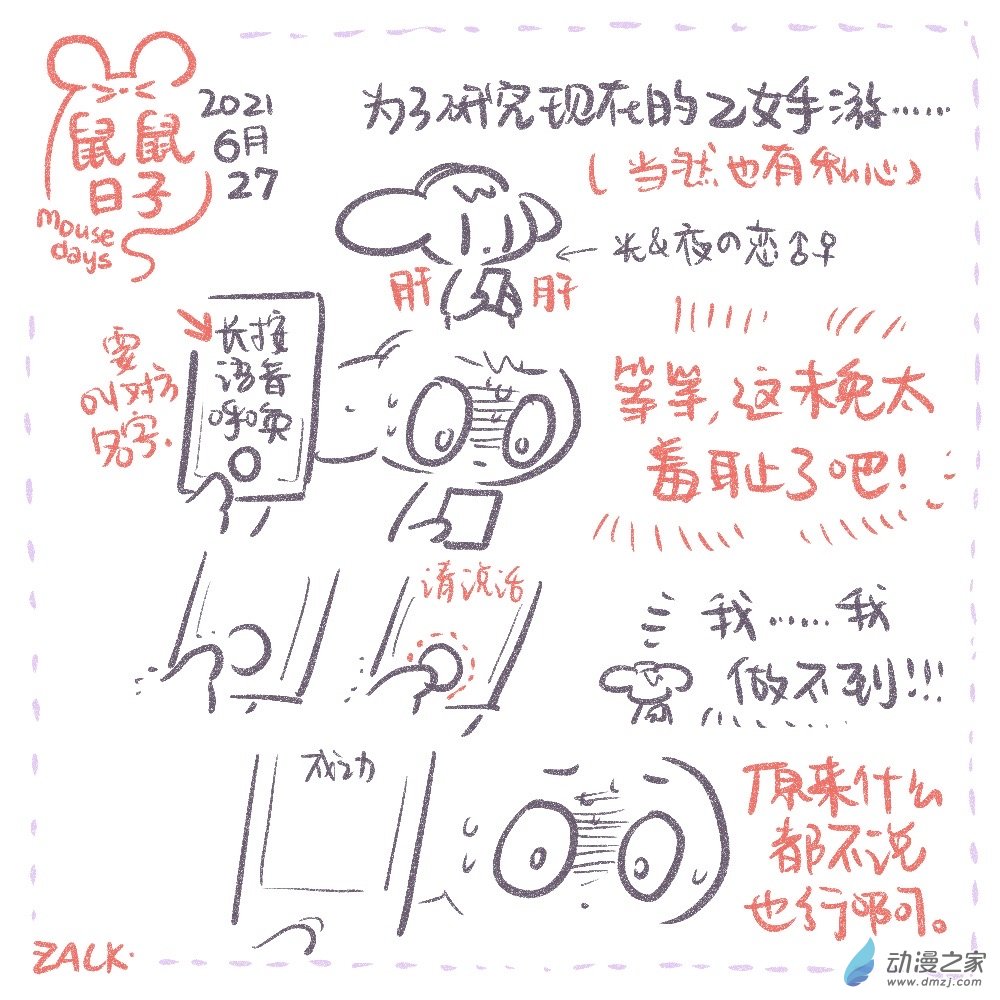 鼠鼠
日子
mouse
days
2021
6月
27
为了研究现在的乙女手游……
(当然也有私心)
肝
肝
←光&夜の恋♂♀
要
叫对方
名字.
长按
语音
呼唤
等等,这未免太
羞耻了吧!
请说话
我……我
做不到!!!
成功
原来什么
都不说
也行啊。
ZALK.
动漫之家
www.dmzj.com